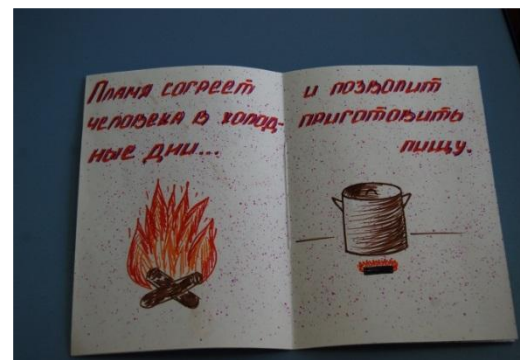 Пламя согреет
человека в холод-
ные дни...
и позволит
приготовить
пищу.